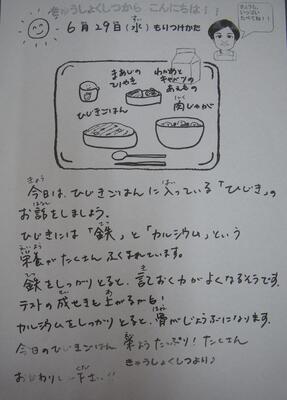 きゅうしょくしつから こんにちは!!
6月29日(水) もりつけかた
きょうも、
いっぱい
たべてね!!
まあじの
てりやき
わかめと
キャベツの
あえもの
ひじきごはん
肉じゃが
今日は、ひじきごはんに入っている「ひじき」の
お話をしましょう。
ひじきには「鉄」と「カルシウム」という
栄養がたくさんふくまれています。
鉄をしっかりとると、記おく力がよくなるそうです。
テストの成せきも上がるかも!
カルシウムをしっかりとると、骨がじょうぶになります。
今日のひじきごはん 栄ようたっぷり! たくさん
おかわりし 下さい!!
きゅうしょくしつより♪